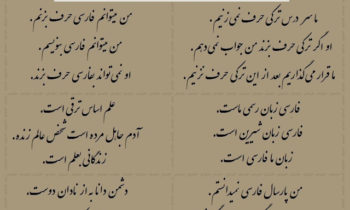 ما سر درس ترکی حرف نمی زنیم.
او اگر ترکی حرف بزند من جواب نمی دهم.
ما قرار می گذاریم بعد از این ترکی حرف نزنیم.
من میتوانم فارسی حرف بزنم.
من میتوانم فارسی بنویسم.
او نمی تواند بفارسی حرف بزند.
فارسی زبان رسمی ماست.
فارسی زبان شیرین است.
زبان ما فارسی است.
علم اساس ترقی است.
آدم جاهل مرده است شخص عالم زنده.
زندگانی بعلم است.
من پارسال فارسی نمیدانستم.
دشمن دانا به از نادان دوست.